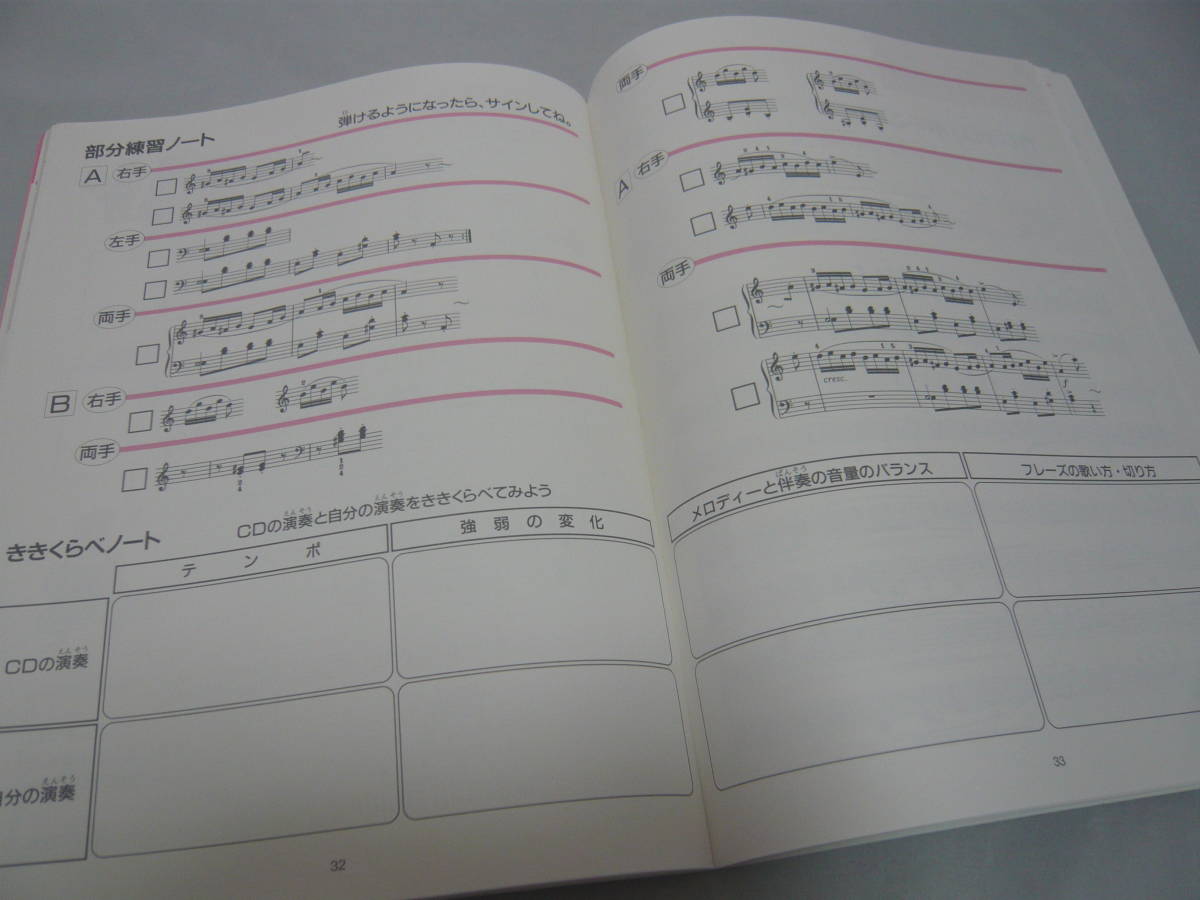 部分練習ノート
弾けるようになったら、サインしてね。
A 右手
左手
両手
B 右手
両手
ききくらべノート
CDの演奏と自分の演奏をききくらべてみよう
テンポ
強弱の変化
CDの演奏
自分の演奏
32
両手
A 右手
両手
cresc.
f
メロディーと伴奏の音量のバランス
フレーズの歌い方・切り方
33